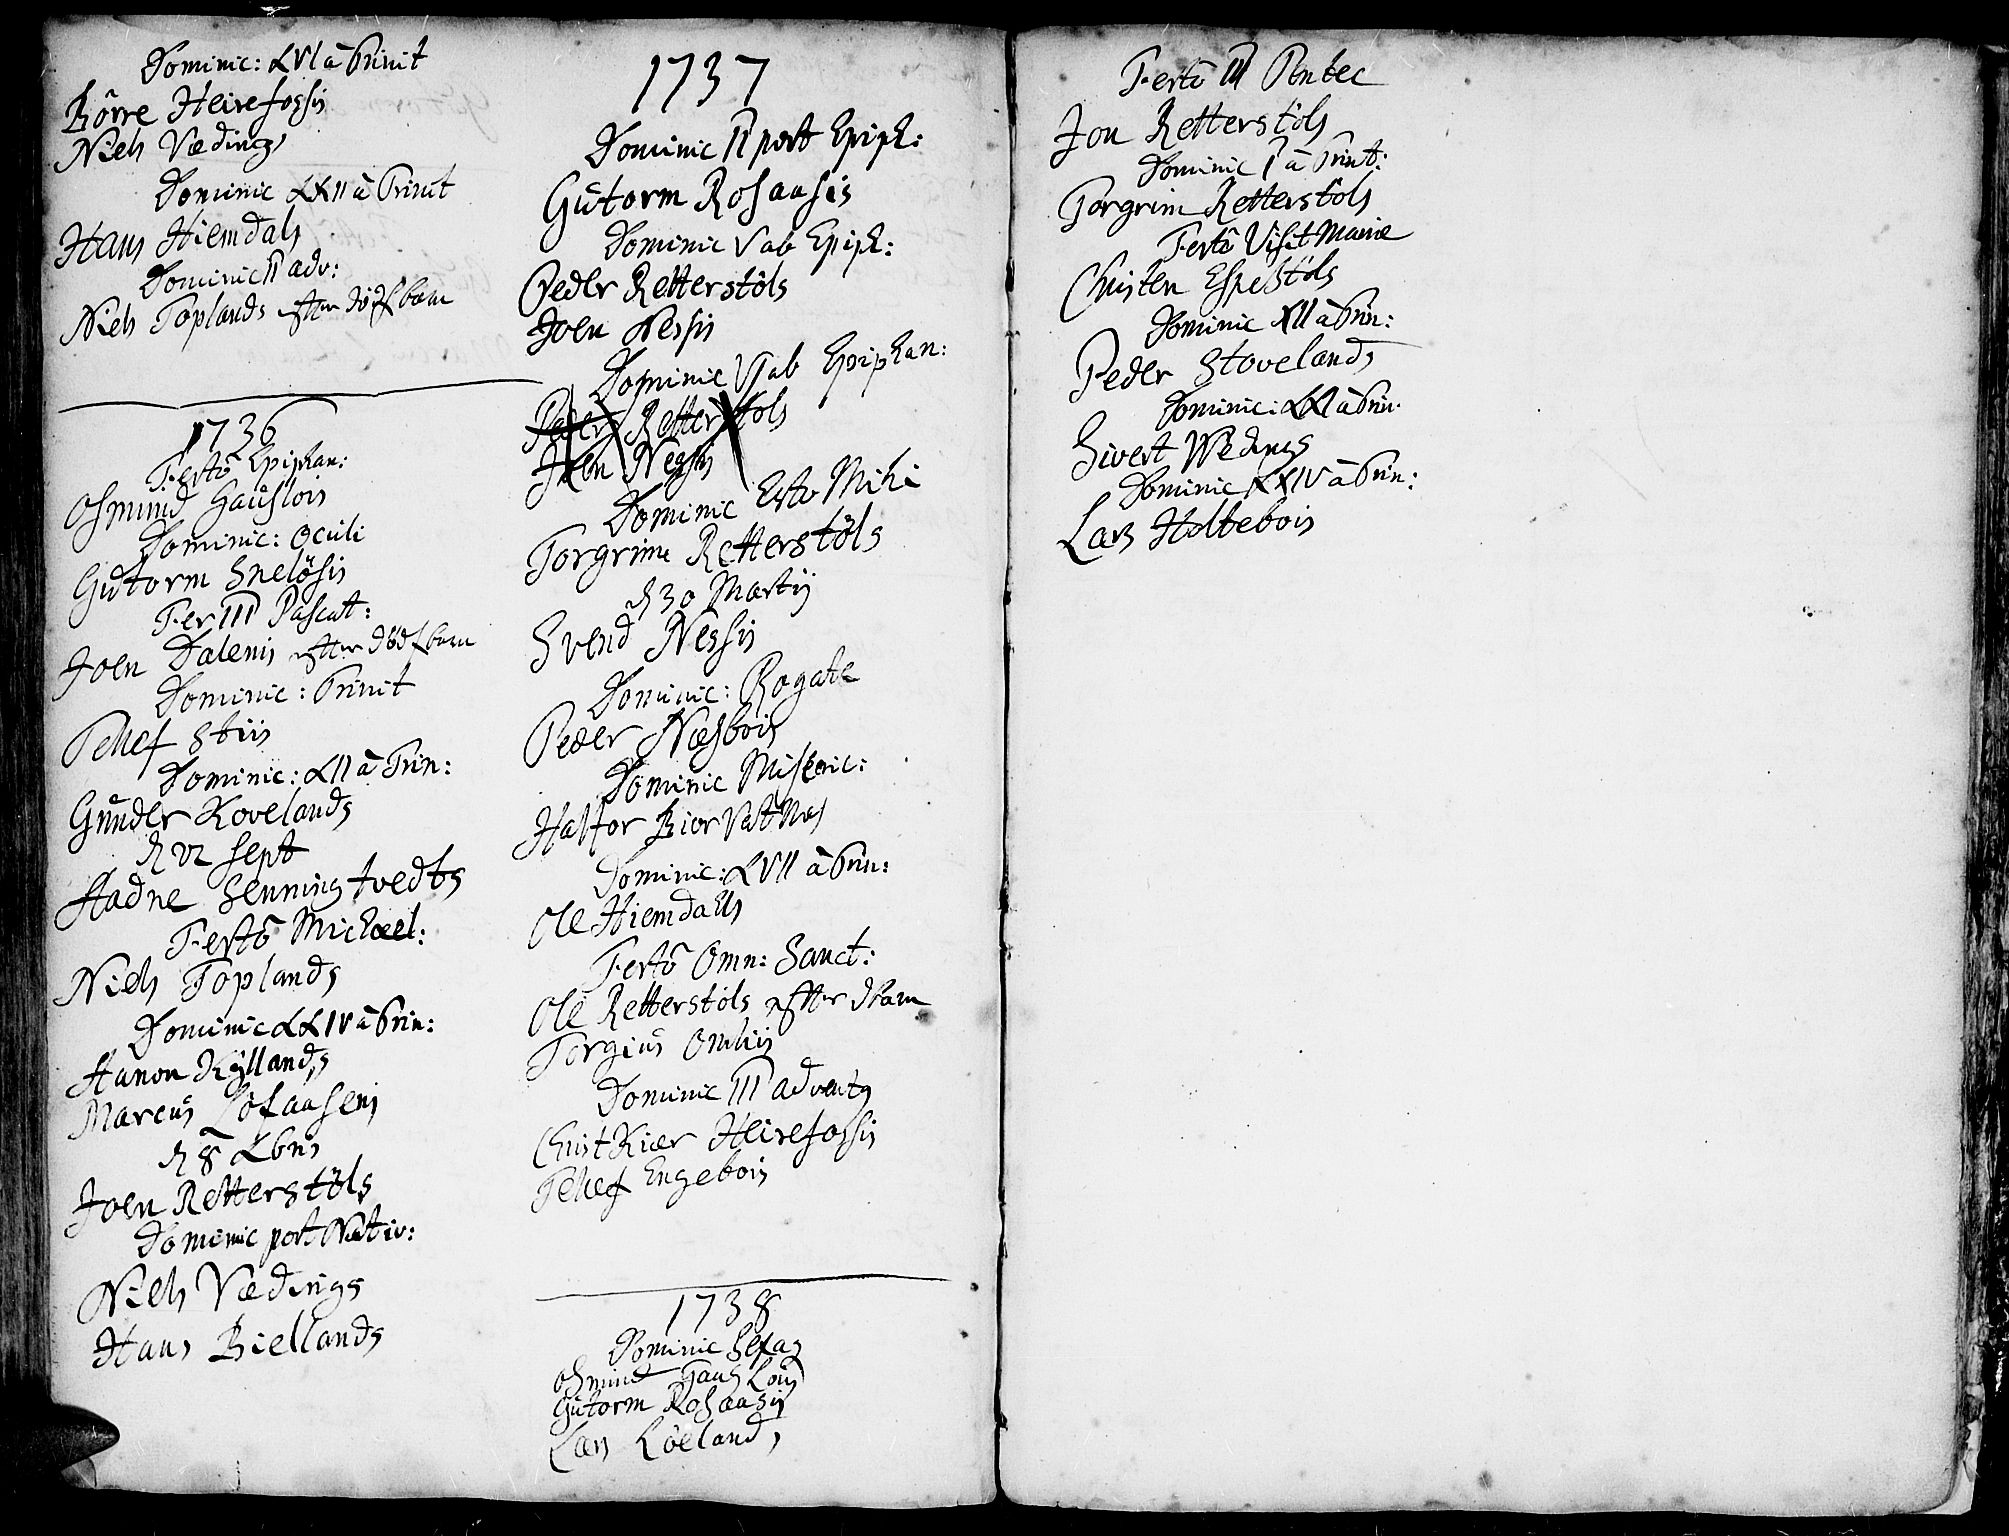 Dominic: XVI à Trinit
Børre Heirefossis
Niels Vædings
Dominic XXII à Trinit
Hans Hiemdals
Dominic II adv:
Niels Toplands efter dødf barn
1736
Festo Epiphan:
Osmund Gauslois
Dominic: Oculi
Gutorm Sneløsis
Fer III Pascat:
Joen Dalenis efter dødf barn
Dominic: Trinit
Tellef Stiis
Dominic: XII à Trin:
Gunder Kovelands
d 12 Sept
Aadne Senningtvedts
Festo Michael:
Niels Toplands
Dominic XXIV à Trin:
Aanon Kyllands
Marcus Løfaasens
d 8 Xbris
Joen Retterstøls
Dominic post Nativ:
Niels Vædings
Hans Biellands
1737
Dominic II post Epiph:
Gutorm Rosaasis
Dominic V ab Epiph:
Peder Retterstøls
Joen Nessis
Dominic V ab Epiphan:
Peder Retterstøls
Joen Nessis
Dominic Esto Mihi
Torgrim Retterstøls
d 30 Martij
Svend Nessis
Dominic: Rogate
Peder Næsbois
Dominic Miseric:
Halfor Biorvatnes
Dominic: XVII à Trin:
Ole Hiemdals
Festo Omn: Sanct:
Ole Retterstøls efter dbarn
Torgius Omliis
Dominic III advents
Christ Kiær Heirefossis
Tellef Engebois
1738
Dominic Sexag
Osmund Gauslois
Gutorm Rosaasis
Lars Løelands
Festo III Pentec
Jon Retterstøls
Dominic I à Trint:
Torgrim Retterstøls
Festo Visit Mariæ
Christen Espestøls
Dominic XII à Trin:
Peder Stovelands
Dominic: XXI à Trin:
Sivert Wedings
Dominic XXIV à Trin:
Lars Holtebois